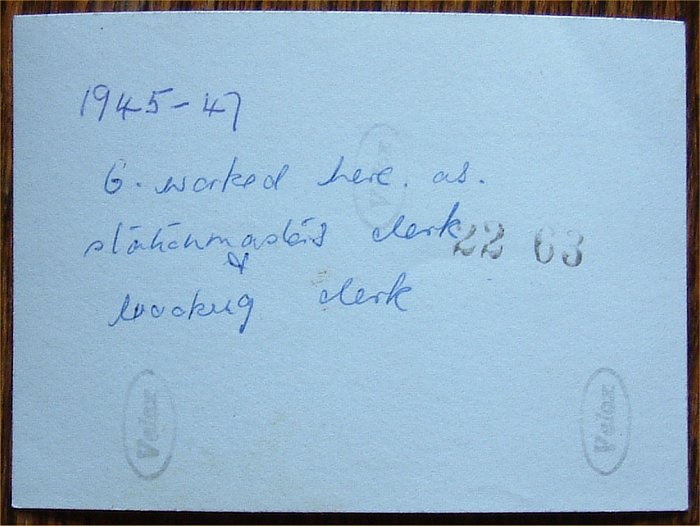 1945-47
G. worked here. as.
stationmaster's clerk 22 63
&
booking clerk
Velox Velox